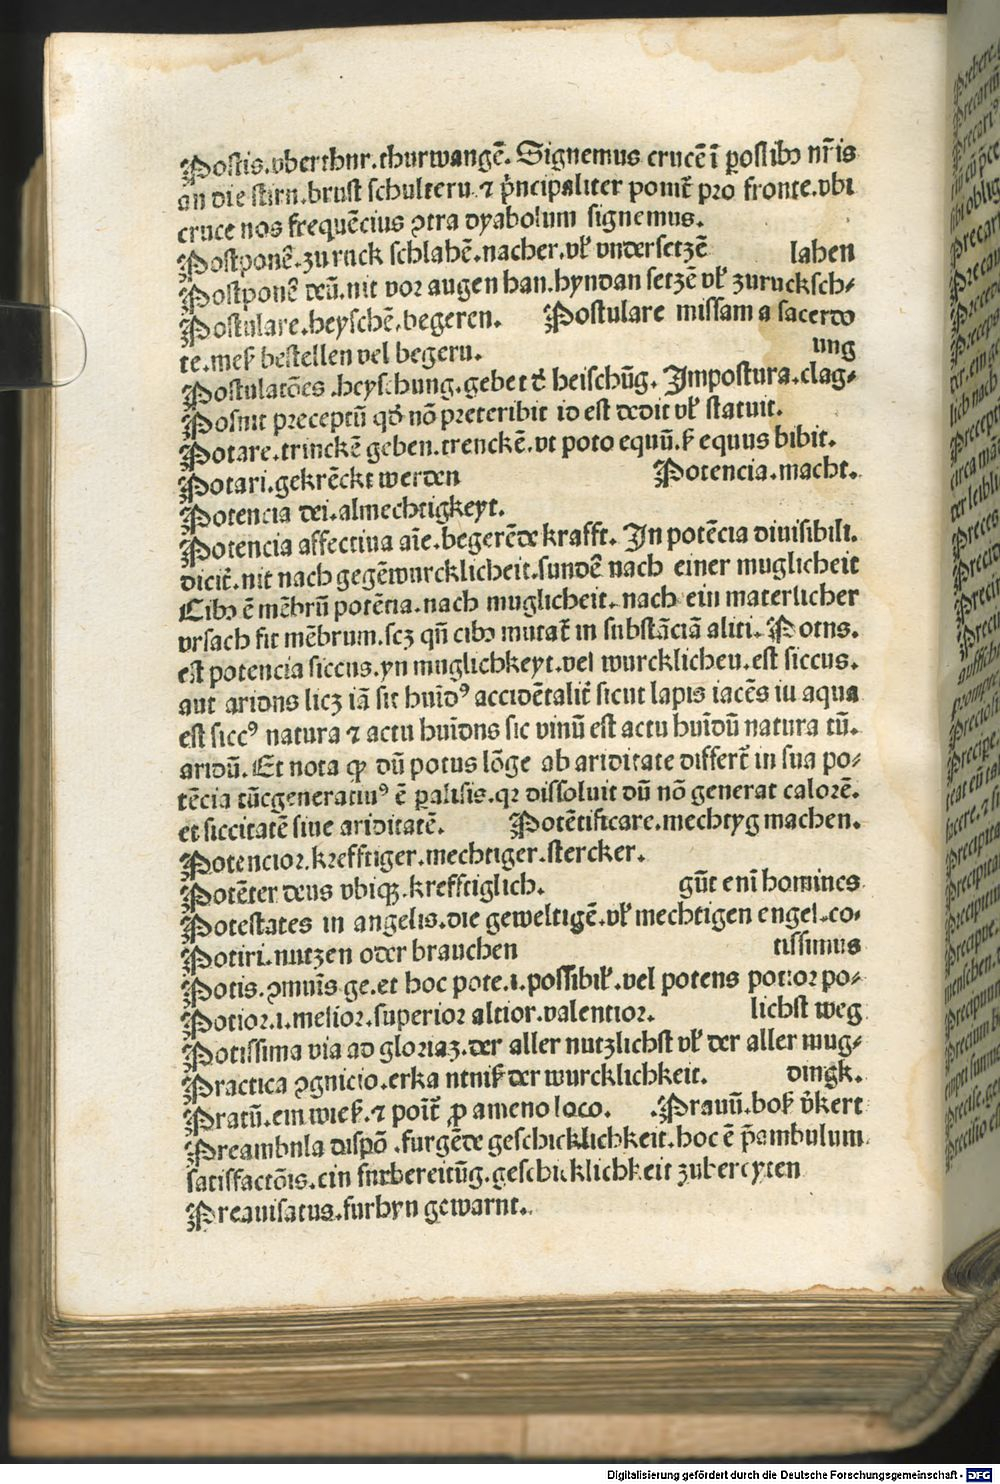 Postis.vberthur.thurwangē. Signemus crucē ī postibꝫ nr̄is
an die stirn.brust schultern ⁊ p̄ncipaliter ponit̄ pro fronte.vbi
cruce nos frequēcius ꝯtra dyabolum signemus.
Postponē.zuruck schlahē.nacher.vl̓ vndersetzē lahen
Postponē deū.nit vor augen han.hyndan setzē vl̓ zurucksch⸗
Postulare.heyschē.begeren. Postulare missam a sacerdo
te.meß bestellen vel begern. ung
Postulatōes.heyschung.gebet đ heischūg. Impostura.clag⸗
Posuit preceptū qđ nō preteribit id est dedit vl̓ statuit.
Potare.trinckē geben.trenckē.vt poto equū.ß equus bibit.
Potari.gekrēckt werden Potencia.macht.
Potencia dei.almechtigkeyt.
Potencia affectiua aīe.begerēde krafft. In potēcia diuisibili.
dicit̄.nit nach gegēwurcklicheit.sundē nach einer muglicheit
Cibꝫ ē mēbrū potētia.nach muglicheit.nach ein materlicher
vrsach fit mēbrum.scꝫ qn̄ cibꝫ mutat̄ in substāciā aliti. Potus.
est potencia siccus.yn muglichkeyt.vel wurcklicheu.est siccus.
aut aridus licꝫ iā sit huīdꝰ accidētalit̄ sicut lapis iacēs iu aqua
est siccꝰ natura ⁊ actu huīdus sic vinū est actu huīdū natura tū.
aridū. Et nota ꝙ dū potus lōge ab ariditate differt̄ in sua po⸗
tēcia tūcgeneratiuꝰ ē ꝑalisis.qꝛ dissoluit dū nō generat calorē.
et siccitatē siue ariditatē. Potētificare.mechtyg machen.
Potencior.krefftiger.mechtiger.stercker.
Potēter deus vbiqꝫ.krefftiglich. gūt enī homines
Potestates in angelis.die geweltigē.vl̓ mechtigen engel.co⸗
Potiri.nutzen oder brauchen tissimus
Potis.ꝯmunīs ge.et hoc pote.i.possibil̓.vel potens potior po⸗
Potior.i.melior.superior altior.valentior. lichst weg
Potissima via ad gloriaꝫ.der aller nutzlichst vl̓ der aller mug⸗
Practica ꝯgnicio.erka ntniß der wurcklichkeit. dingk.
Pratū.ein wieß.⁊ poit̄ ꝓ ameno loco. .Prauū.boß v̓kert
Preambula dispō.furgēde geschicklichkeit.hoc ē p̄ambulum
satisfactōis.ein furbereitūg.geschicklichkeit zubereyten
Preauisatus.furhyn gewarnt.
Digitalisierung gefördert durch die Deutsche Forschungsgemeinschaft - DFG